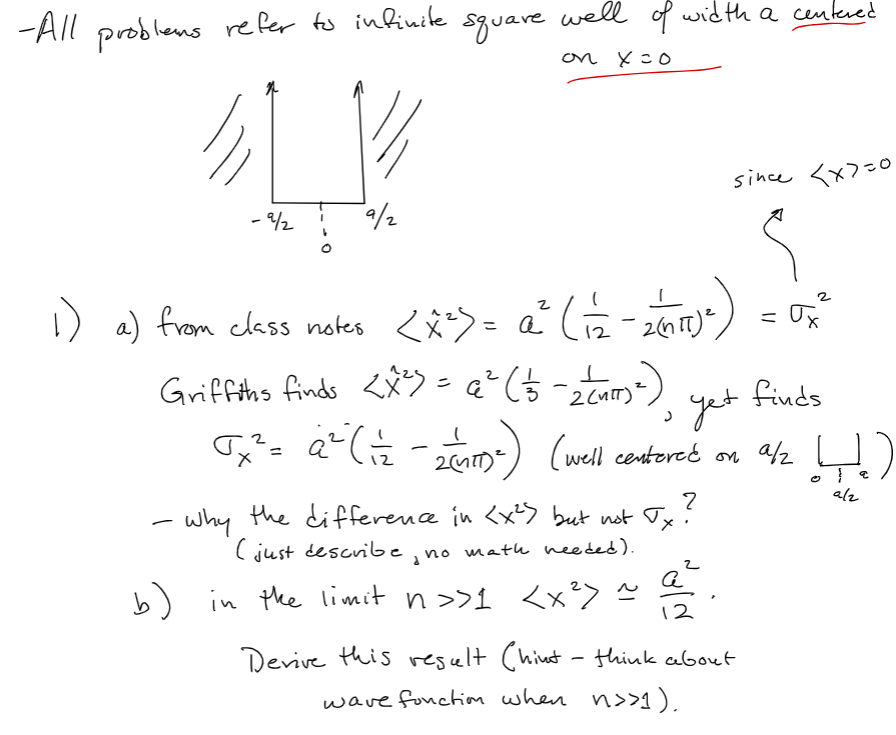 -All problems refer to infinite square well of width a centered
on x=0
-a/2
a/2
0
since <x>=0
1) a) from class notes <x̂²> = a² (1/12 - 1/2(nπ)²) = σx²
Griffiths finds <x̂²> = a² (1/3 - 1/2(nπ)²), yet finds
σx² = a² (1/12 - 1/2(nπ)²) (well centered on a/2 )
0 a
a/2
- why the difference in <x²> but not σx?
(just describe, no math needed).
b) in the limit n>>1 <x²> ≃ a²/12.
Derive this result (hint - think about
wavefunction when n>>1).